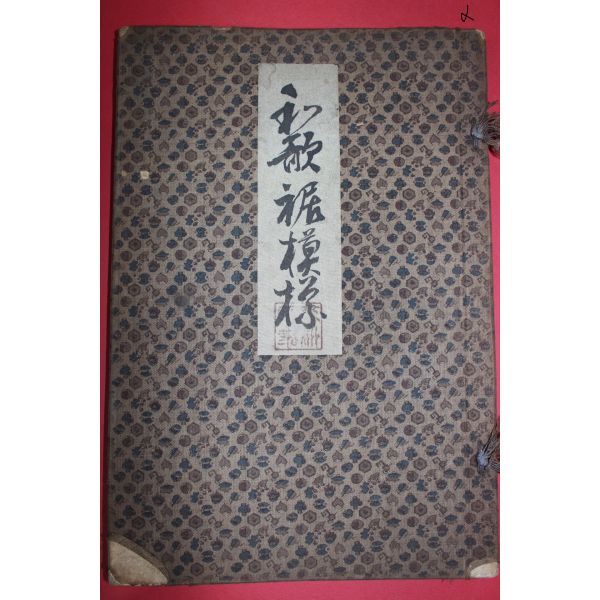 和歌裾模様